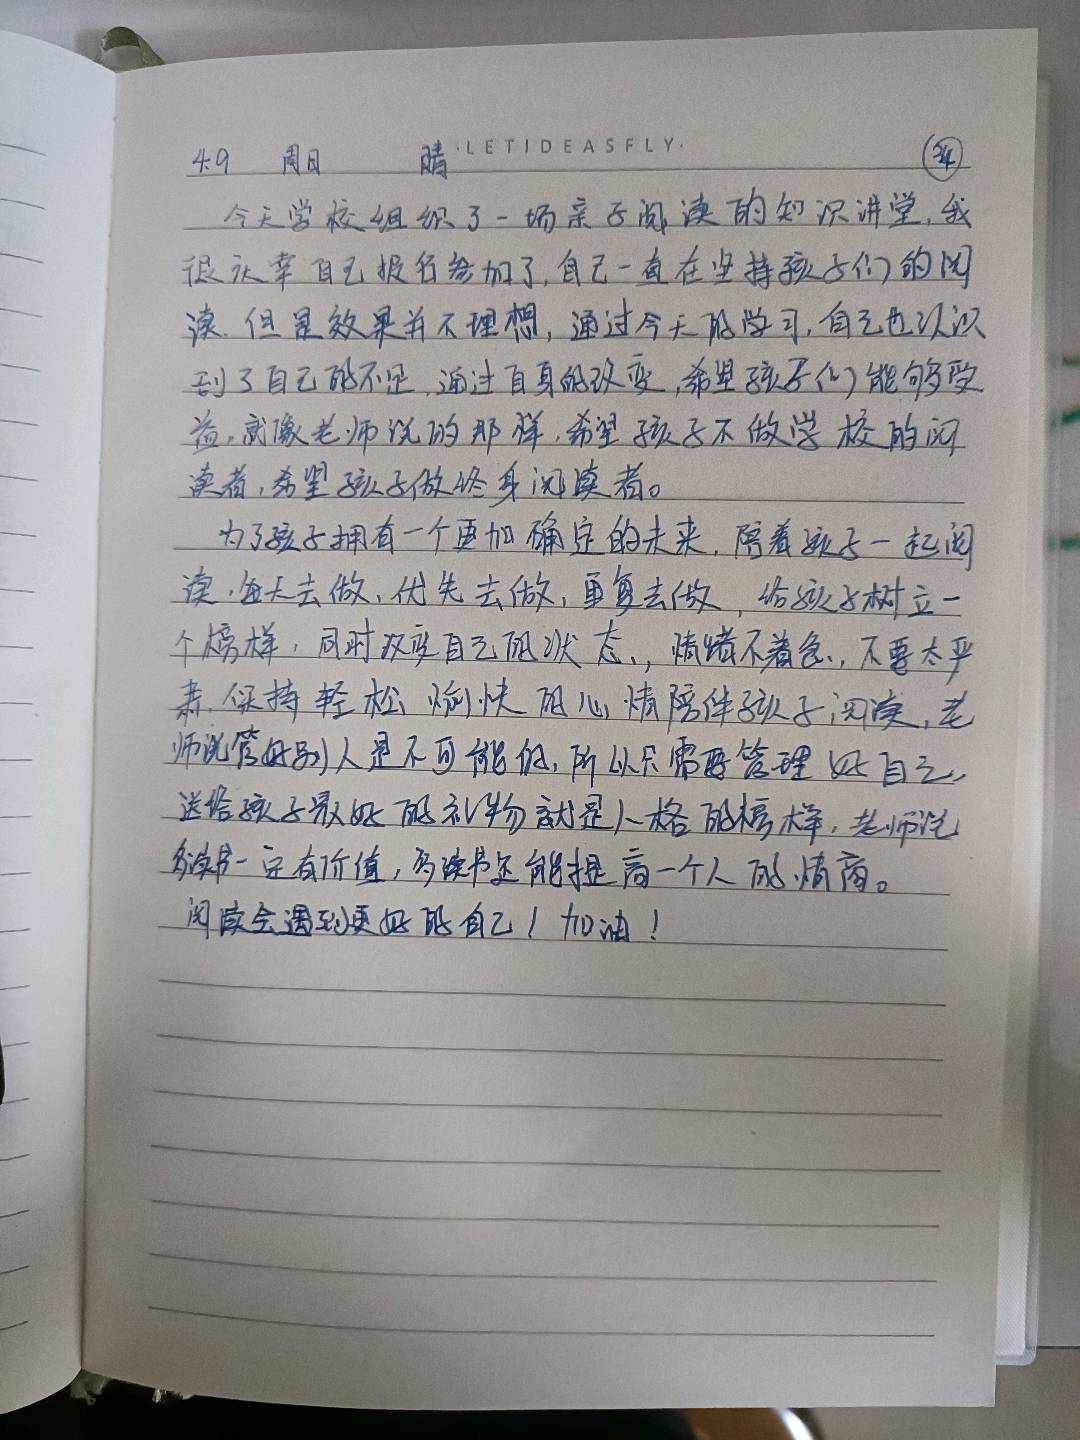 ·LETIDEASFLY·
4.9 周日 晴 34
今天学校组织了一场亲子阅读的知识讲堂,我
很庆幸自己报名参加了,自己一直在坚持孩子们的阅
读.但是效果并不理想,通过今天的学习,自己也认识
到了自己的不足,通过自身的改变,希望孩子们能够受
益,就像老师说的那样,希望孩子不做学校的阅
读者,希望孩子做终身阅读者。
为了孩子拥有一个更加确定的未来,陪着孩子一起阅
读,每天去做、优先去做,重复去做,给孩子树立一
个榜样,同时改变自己的状态,情绪不着急,不要太严
肃.保持轻松愉快的心情陪伴孩子阅读,老
师说管好别人是不可能的,所以只需要管理好自己,
送给孩子最好的礼物就是人格的榜样,老师说
多读书一定有价值,多读书还能提高一个人的情商。
阅读会遇到更好的自己!加油!